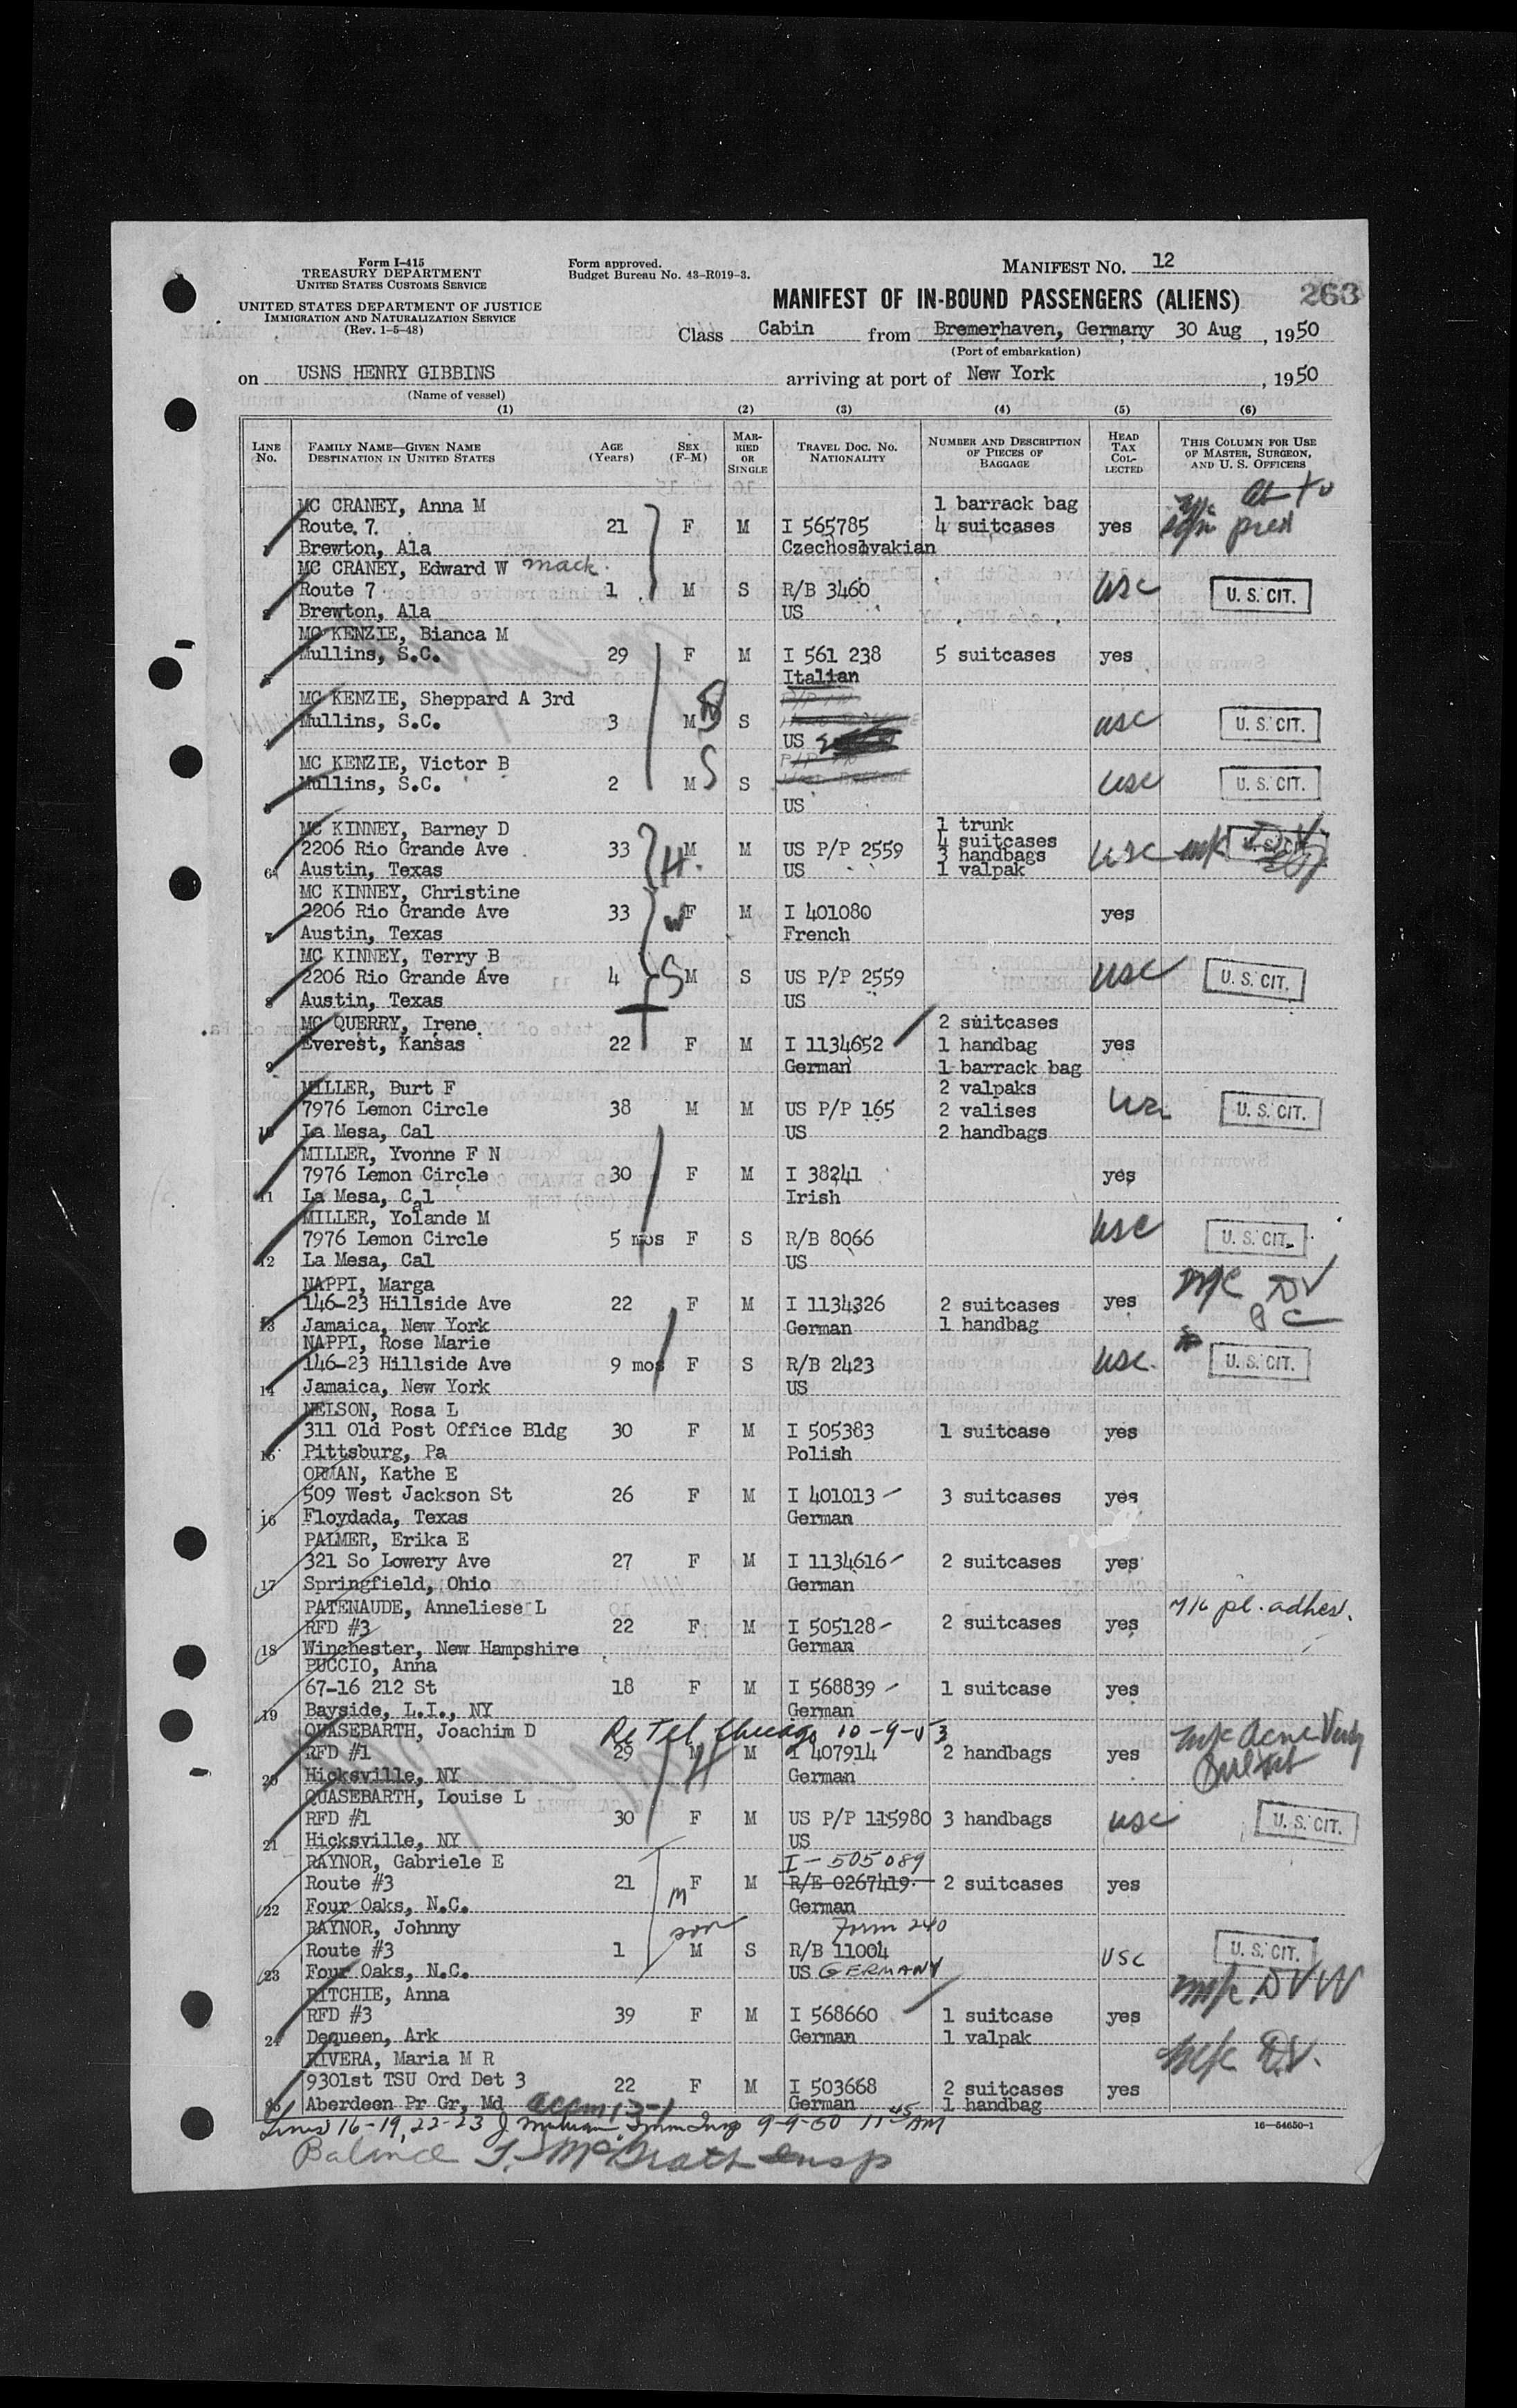 Form I-415
TREASURY DEPARTMENT
UNITED STATES CUSTOMS SERVICE
UNITED STATES DEPARTMENT OF JUSTICE
IMMIGRATION AND NATURALIZATION SERVICE
(Rev. 1-5-48)
Form approved.
Budget Bureau No. 43-R019-3.
MANIFEST NO. 12
MANIFEST OF IN-BOUND PASSENGERS (ALIENS) 263
Class Cabin from Bremerhaven, Germany 30 Aug, 1950
(Port of embarkation)
on USNS HENRY GIBBINS arriving at port of New York, 1950
(Name of vessel)
(1) (2) (3) (4) (5) (6)
LINE NO. FAMILY NAME—GIVEN NAME DESTINATION IN UNITED STATES AGE (Years) SEX (F-M) MARRIED OR SINGLE TRAVEL DOC. NO. NATIONALITY NUMBER AND DESCRIPTION OF PIECES OF BAGGAGE HEAD TAX COLLECTED THIS COLUMN FOR USE OF MASTER, SURGEON, AND U. S. OFFICERS
MC CRANEY, Anna M 1 barrack bag
Route 7 21 F M I 565785 4 suitcases yes
1 Brewton, Ala Czechoslovakian
MC CRANEY, Edward W Mack.
Route 7 1 M S R/B 3460 USC U. S. CIT.
2 Brewton, Ala US
MC KENZIE, Bianca M
Mullins, S.C. 29 F M I 561 238 5 suitcases yes
3 Italian
MC KENZIE, Sheppard A 3rd
Mullins, S.C. 3 M S S USC U. S. CIT.
4 US
MC KENZIE, Victor B
Mullins, S.C. 2 M S S USC U. S. CIT.
5 US
MC KINNEY, Barney D 1 trunk
4 suitcases
2206 Rio Grande Ave 33 H. M M US P/P 2559 3 handbags USC
6 Austin, Texas US 1 valpak
MC KINNEY, Christine
2206 Rio Grande Ave 33 W F M I 401080 yes
7 Austin, Texas French
MC KINNEY, Terry B
2206 Rio Grande Ave 4 S M S US P/P 2559 USC U. S. CIT.
8 Austin, Texas US
MC QUERRY, Irene 2 suitcases
Everest, Kansas 22 F M I 1134652 1 handbag yes
9 German 1 barrack bag
MILLER, Burt F 2 valpaks
7976 Lemon Circle 38 M M US P/P 165 2 valises U. S. CIT.
10 La Mesa, Cal US 2 handbags
MILLER, Yvonne F N
7976 Lemon Circle 30 F M I 38241 yes
11 La Mesa, Cal Irish
MILLER, Yolande M
7976 Lemon Circle 5 mos F S R/B 8066 USC U. S. CIT.
12 La Mesa, Cal US
NAPPI, Marga
146-23 Hillside Ave 22 F M I 1134326 2 suitcases yes
13 Jamaica, New York German 1 handbag
NAPPI, Rose Marie
146-23 Hillside Ave 9 mos F S R/B 2423 USC. U. S. CIT.
14 Jamaica, New York US
NELSON, Rosa L
311 Old Post Office Bldg 30 F M I 505383 1 suitcase yes
15 Pittsburg, Pa Polish
ORMAN, Kathe E
509 West Jackson St 26 F M I 401013 3 suitcases yes
16 Floydada, Texas German
PALMER, Erika E
321 So Lowery Ave 27 F M I 1134616 2 suitcases yes
17 Springfield, Ohio German
PATENAUDE, Anneliese L
RFD #3 22 F M I 505128 2 suitcases yes pl. adhes.
18 Winchester, New Hampshire German
PUCCIO, Anna
67-16 212 St 18 F M I 568839 1 suitcase yes
19 Bayside, L.I., NY German
QUASEBARTH, Joachim D Re Tel Chicago 10-9-53
RFD #1 29 M H M I 407914 2 handbags yes
20 Hicksville, NY German
QUASEBARTH, Louise L
RFD #1 30 F M US P/P 115980 3 handbags USC U. S. CIT.
21 Hicksville, NY US
RAYNOR, Gabriele E I-505089
Route #3 21 M F M R/E 0267419 2 suitcases yes
22 Four Oaks, N.C. German
RAYNOR, Johnny son Form 240
Route #3 1 M S R/B 11004 USC U. S. CIT.
23 Four Oaks, N.C. US GERMANY
RITCHIE, Anna
RFD #3 39 F M I 568660 1 suitcase yes
24 Dequeen, Ark German 1 valpak
RIVERA, Maria M R
9301st TSU Ord Det 3 22 F M I 503668 2 suitcases yes
25 Aberdeen Pr Gr, Md German 1 handbag
Lines 16-19, 22-23 J. Imm Insp 9-9-50 11 45 AM
16—54650-1
Balance J. McGrath Insp